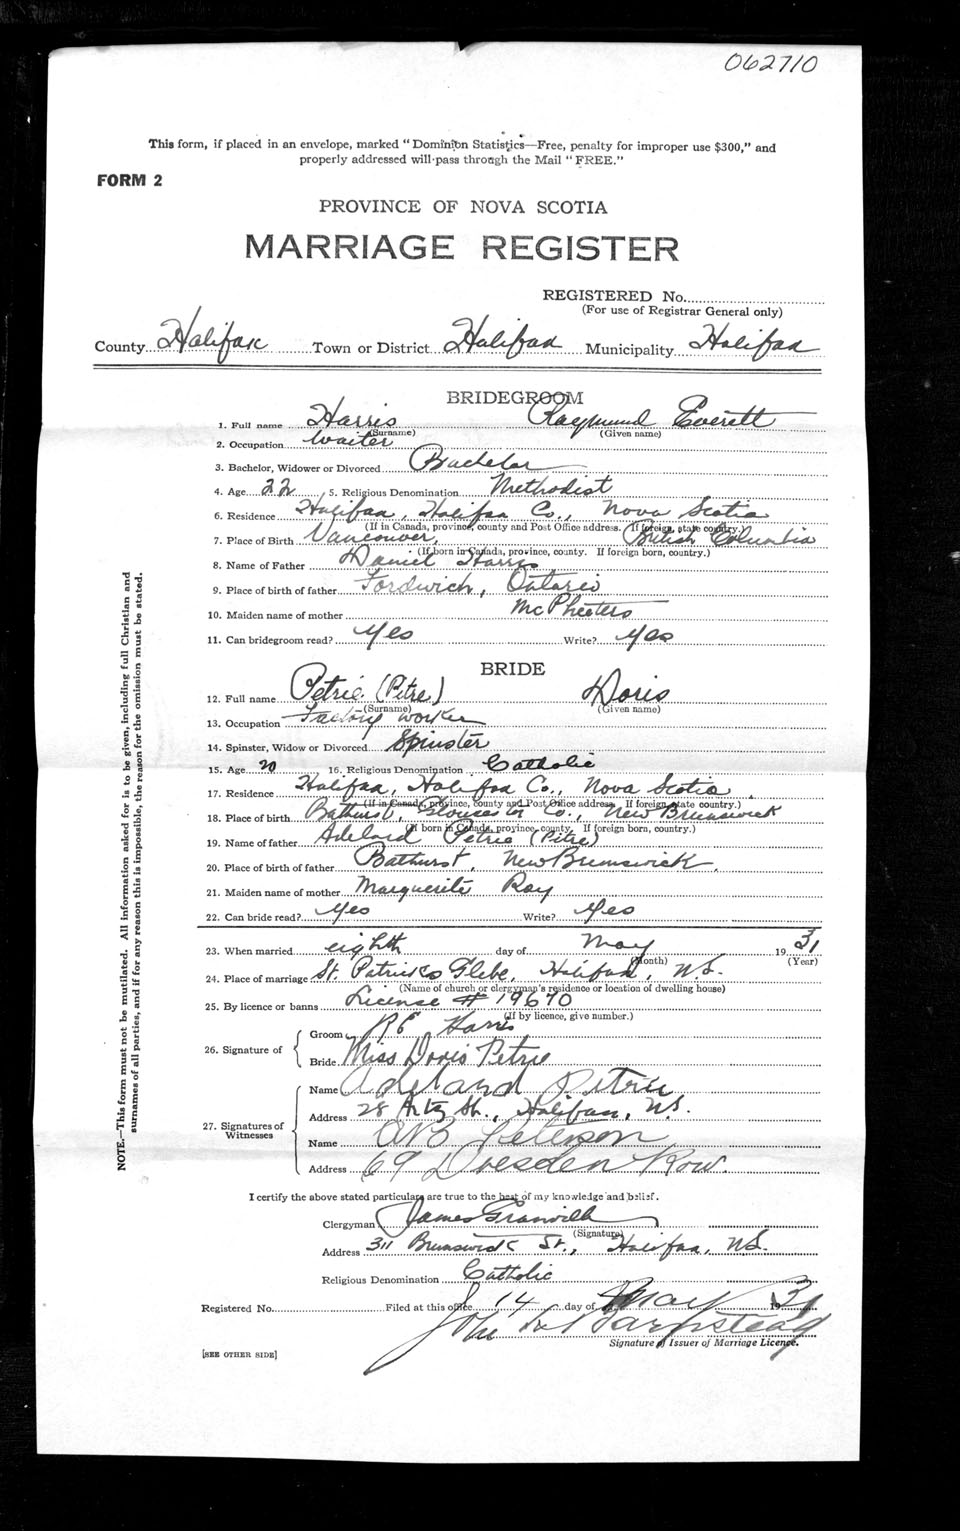 062710
This form, if placed in an envelope, marked "Dominion Statistics—Free, penalty for improper use $300," and
properly addressed will pass through the Mail "FREE."
FORM 2
PROVINCE OF NOVA SCOTIA
MARRIAGE REGISTER
REGISTERED No.
(For use of Registrar General only)
County Halifax Town or District Halifax Municipality Halifax
BRIDEGROOM
1. Full name Harris Raymund Everett
(Surname) (Given name)
2. Occupation waiter
3. Bachelor, Widower or Divorced Bachelor
4. Age 22 5. Religious Denomination Methodist
6. Residence Halifax, Halifax Co., Nova Scotia
(If in Canada, province, county and Post Office address. If foreign, state country.)
7. Place of Birth Vancouver, British Columbia
(If born in Canada, province, county. If foreign born, country.)
8. Name of Father Daniel Harris
9. Place of birth of father Fordwich, Ontario
10. Maiden name of mother McPheeters
11. Can bridegroom read? Yes Write? Yes
BRIDE
12. Full name Petrie (Pitre) Doris
(Surname) (Given name)
13. Occupation Factory worker
14. Spinster, Widow or Divorced Spinster
15. Age 20 16. Religious Denomination Catholic
17. Residence Halifax, Halifax Co., Nova Scotia
(If in Canada, province, county and Post Office address. If foreign state country.)
18. Place of birth Bathurst, Gloucester Co., New Brunswick
(If born in Canada, province, county. If foreign born, country.)
19. Name of father Adelard Petrie (Pitre)
20. Place of birth of father Bathurst, New Brunswick.
21. Maiden name of mother Marguerite Roy
22. Can bride read? Yes Write? Yes
23. When married eighth day of May 1931
(Month) (Year)
24. Place of marriage St. Patricks Glebe, Halifax, N.S.
(Name of church or clergyman's residence or location of dwelling house)
25. By licence or banns License # 19670
(If by licence, give number.)
26. Signature of
Groom R E Harris
Bride Miss Doris Petrie
27. Signatures of
Witnesses
Name Adelard Petrie
Address 28 Artz St., Halifax, N.S.
Name Peterson
Address 69 Dresden Row.
I certify the above stated particulars are true to the best of my knowledge and belief.
Clergyman James Granville
(Signature)
Address 311 Brunswick St., Halifax, N.S.
Religious Denomination Catholic
Registered No. Filed at this office 14 day of May 1931
John Barnstead
Signature of Issuer of Marriage Licence.
[SEE OTHER SIDE]
NOTE.—This form must not be mutilated. All information asked for is to be given, including full Christian and
surnames of all parties, and if for any reason this is impossible, the reason for the omission must be stated.